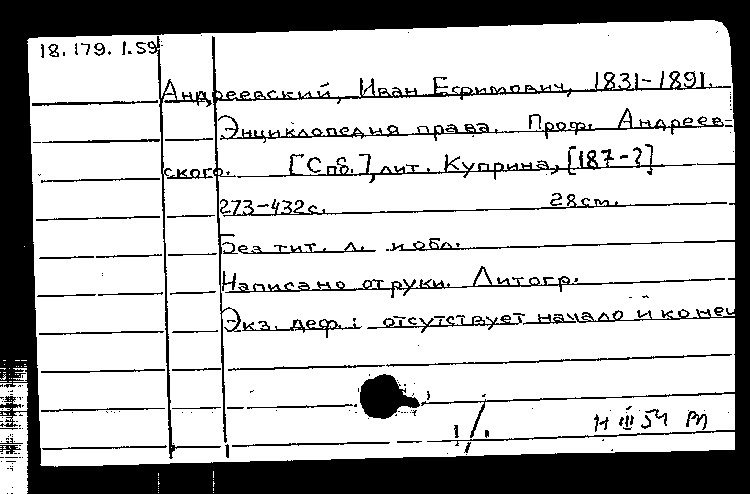 18.179.1.59
Андреевский, Иван Ефимович, 1831-1891.
Энциклопедия права. Проф. Андреев-
ского. [Спб.], лит. Куприна, [187-?]
273-432с. 28см.
Без тит. л. и обл.
Написано от руки. Литогр.
Экз. деф.: отсутствует начало и конец
III 54